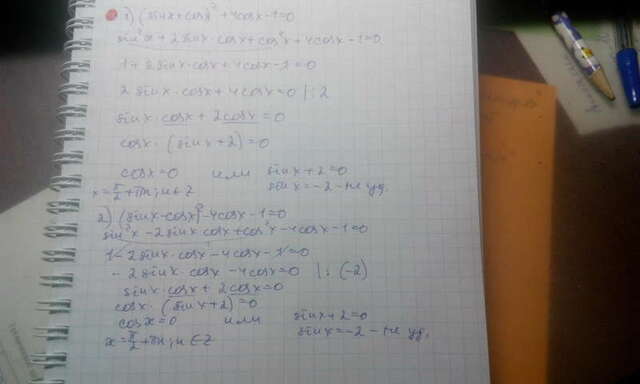 1) (sinx+cosx)²+4cosx-1=0
sin²x+2sinx·cosx+cos²x+4cosx-1=0
1+2sinx·cosx+4cosx-1=0
2sinx·cosx+4cosx=0 |:2
sinx·cosx+2cosx=0
cosx·(sinx+2)=0
cosx=0 или sinx+2=0
x=π/2+πn; n∈Z sinx=-2-не уд.
2) (sinx-cosx)²-4cosx-1=0
sin²x-2sinx cosx+cos²x-4cosx-1=0
1-2sinx·cosx-4cosx-1=0
-2sinx·cosx-4cosx=0 |:(-2)
sinx·cosx+2cosx=0
cosx·(sinx+2)=0
cosx=0 или sinx+2=0
x=π/2+πn; n∈Z sinx=-2-не уд.